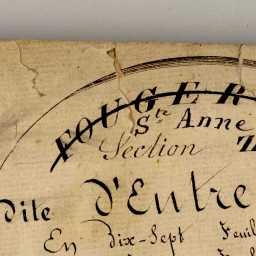 FOUGER
Ste Anne
Section
dite d'Entre
En dix-Sept Feuil